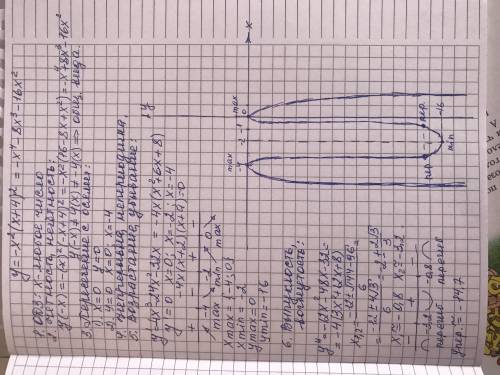 y = -x²(x+4)² = -x⁴-8x³-16x²
1. ОДЗ: x-любое число
2. Чётность, нечётность:
y(-x) = -(-x)²(-x+4)² = -x²(16-8x+x²) = -x⁴+8x³-16x²
y(-x) ≠ y(x) ≠ -y(x) => общ. вида.
3. Пересечение с осями:
1) x=0 y=0
2) y=0 x=0; x=-4
4. непрерывна, непериодична,
5. возрастание, убывание:
y' = -4x³-24x²-32x = -4x(x²+6x+8)
y'=0 x=0; x=-2; x=-4
-4x(x+2)(x+4)=0
+ - + -
-4 -2 0
max min max
x max = {-4; 0}
x min = -2
y max = 0
y min = -16
6. Выпуклость,
вогнутость:
y'' = -12x²-48x-32=
= -4(3x²+12x+8)
x₁,₂ = -12±√144-96 =
6
= -12±4√3 = -2±2√3
6 3
x₁ ≈ -0,8 x₂ ≈ -3,2
- + -
-3,2 -0,8
перегиб перегиб
y пер. ≈ -14,7
y
max
max
-4
-2
-1
0
x
пер.
пер.
-16
min